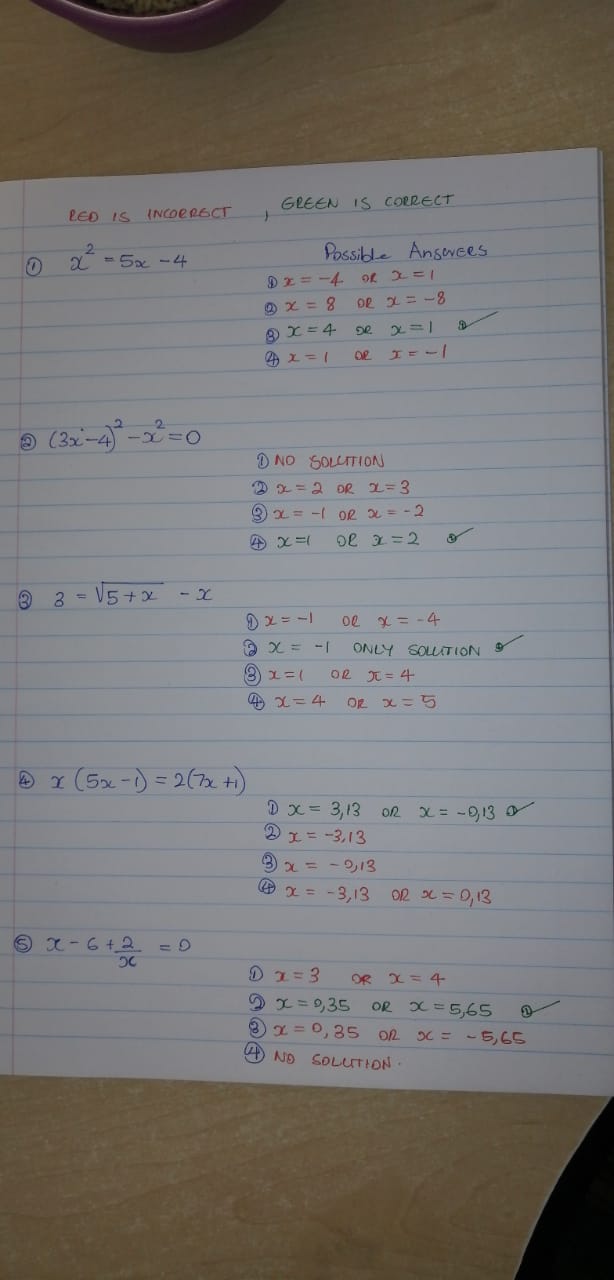 RED IS INCORRECT , GREEN IS CORRECT
① x² = 5x - 4
Possible Answers
① x = -4 OR x = 1
② x = 8 OR x = -8
③ x = 4 OR x = 1 ✓
④ x = 1 OR x = -1
② (3x-4)² - x² = 0
① NO SOLUTION
② x = 2 OR x = 3
③ x = -1 OR x = -2
④ x = 1 OR x = 2 ✓
③ 3 = √(5 + x) - x
① x = -1 OR x = -4
② x = -1 ONLY SOLUTION ✓
③ x = 1 OR x = 4
④ x = 4 OR x = 5
④ x (5x - 1) = 2(7x + 1)
① x = 3,13 OR x = -0,13 ✓
② x = -3,13
③ x = -0,13
④ x = -3,13 OR x = 0,13
⑤ x - 6 + 2/x = 0
① x = 3 OR x = 4
② x = 0,35 OR x = 5,65 ✓
③ x = 0,35 OR x = -5,65
④ NO SOLUTION.